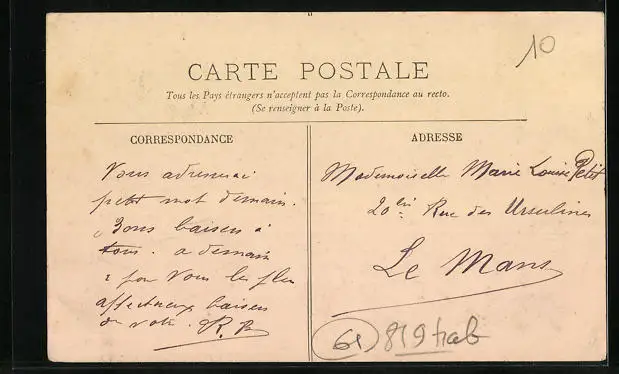 10
CARTE POSTALE
Tous les Pays étrangers n'acceptent pas la Correspondance au recto.
(Se renseigner à la Poste).
CORRESPONDANCE
ADRESSE
Vous adresserai
petit mot demain.
Bons baisers à
tous. a demain
pour Vous les plus
affectueux baisers
de votre R.
Mademoiselle Marie Louise Petit
20 bis Rue des Ursulines
Le Mans
61 819